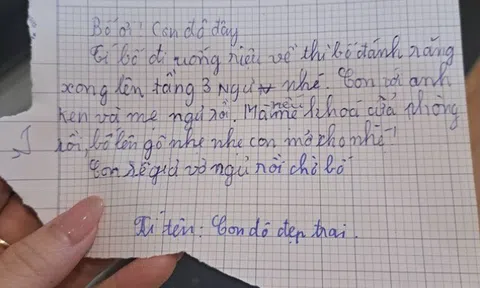 Bố ơi! Con đô đây
Tí bố đi uống riêu về thì bố đánh răng
xong lên tầng 3 ngủ nhé. Con và anh
Ken và mẹ ngủ rồi. Mà nếu mẹ khoá cửa phòng
rồi, bố lên gõ nhẹ nhẹ con mở cho nhé
Con sẽ giả vờ ngủ rồi chờ bố
Kí tên: Con đô đẹp trai.